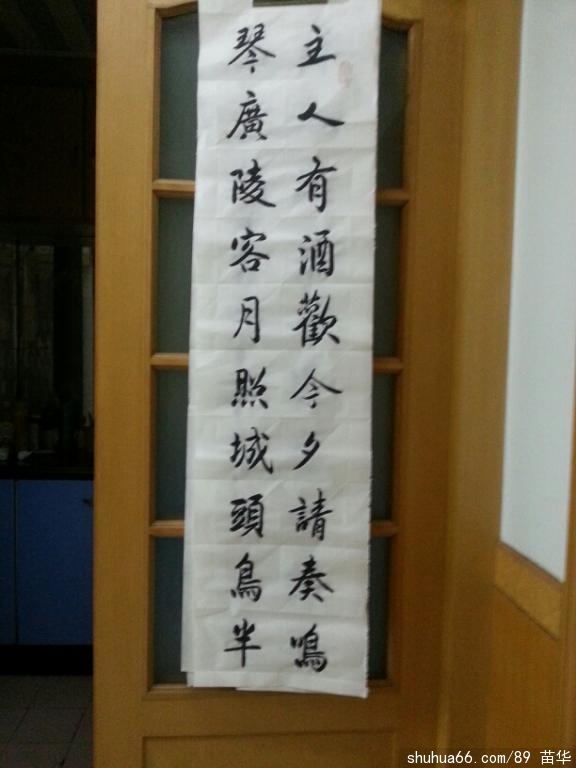 主人有酒歡今夕請奏鳴
琴廣陵客月照城頭鳥半
shuhua66.com/89 苗华